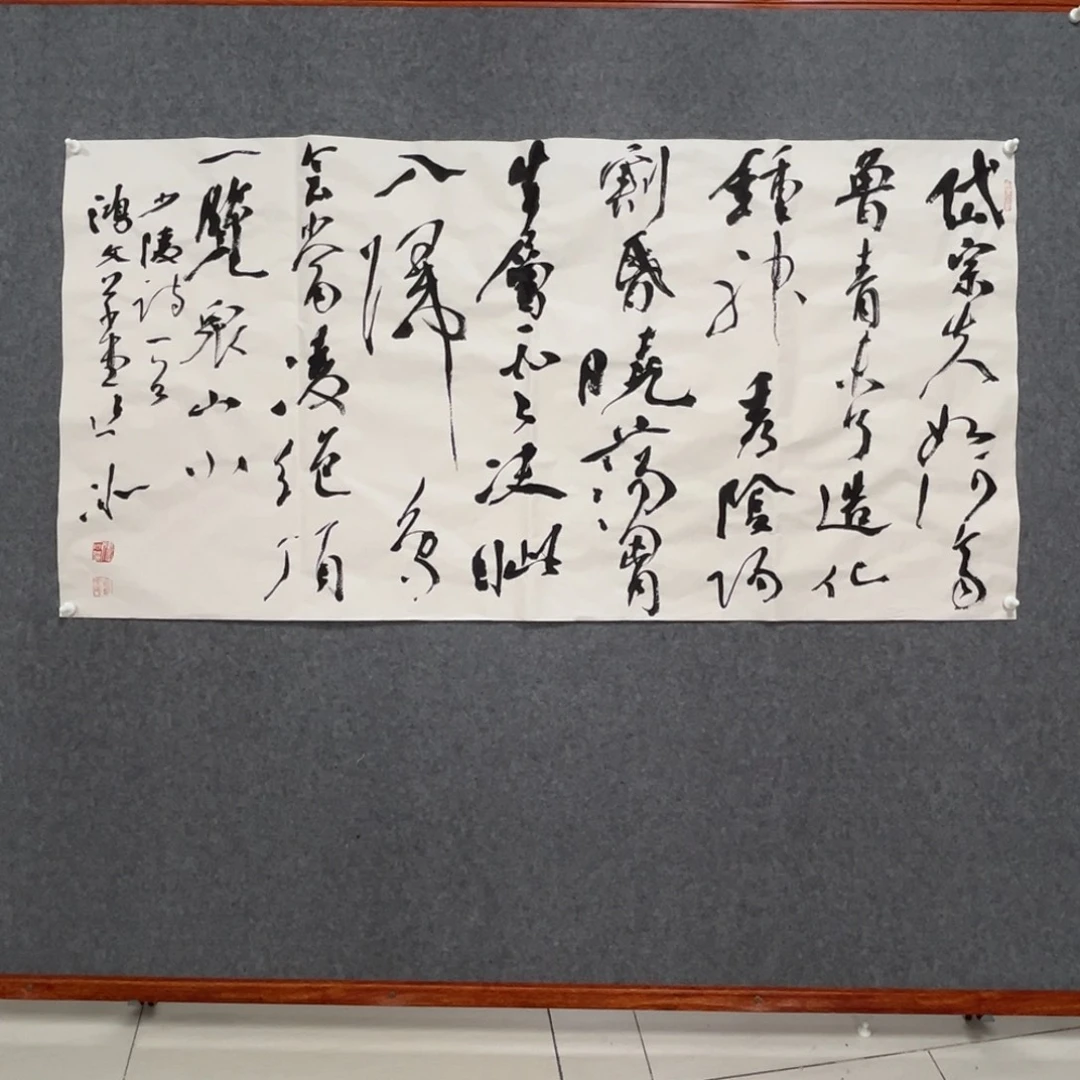 岱宗夫如何齊
魯青未了造化
鍾神秀陰陽
割昏曉蕩胷
生層雲決眦
入歸鳥
會當凌絕頂
一覽眾山小
少陵詩一首
鴻文草堂